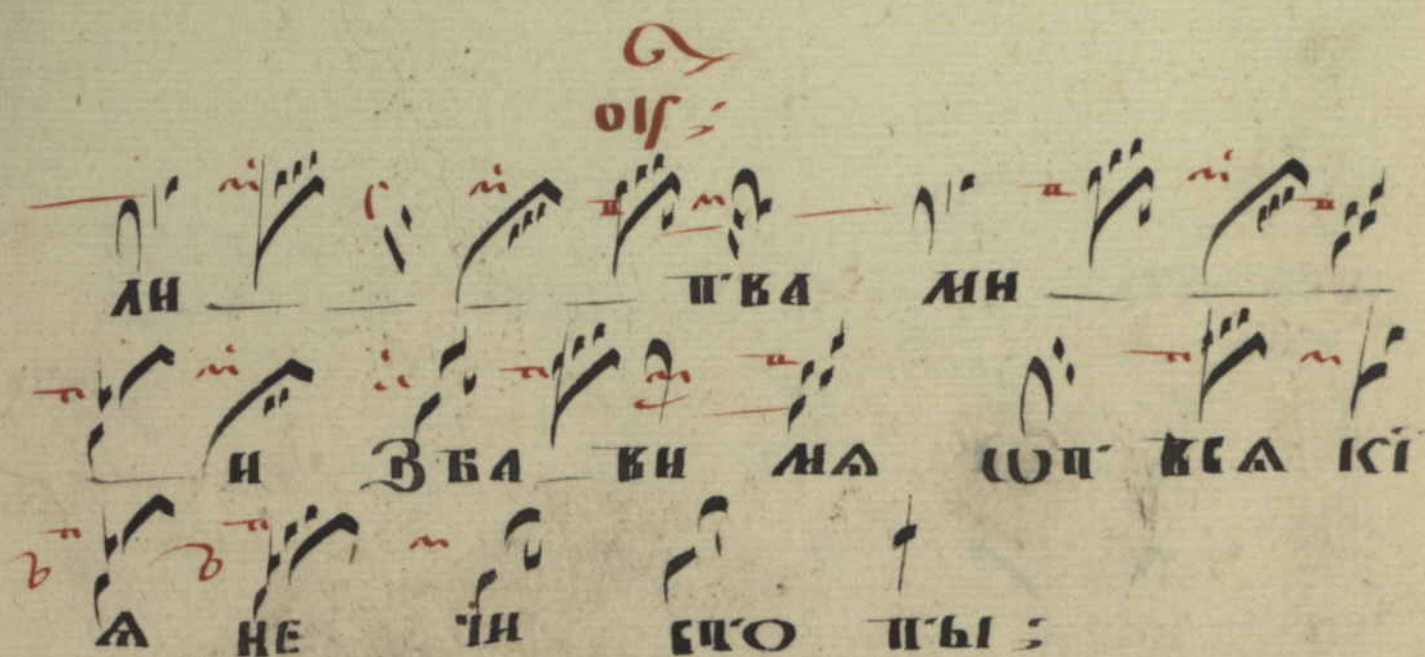 ли тва ми
и зба ви мѧ ѿт всѧ кі
ѧ не чи сто ты :